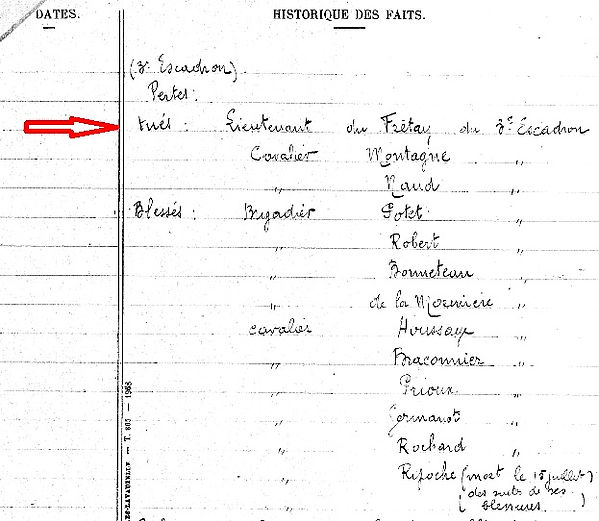 DATES. HISTORIQUE DES FAITS.
(3e Escadron)
Pertes:
tués : Lieutenant du Frétay du 3e Escadron
Cavalier Montagne "
" Naud "
Blessés : Brigadier Potet "
" Robert "
" Bonneteau "
" de la Morinière "
cavalier Houssaye "
" Braconnier "
" Prioux "
" Germanot "
" Rochard "
" Ripoche (mort le 15 juillet)
(des suites de ses
blessures.)
LES-LAVAUZELLE — T. 805 — 1908